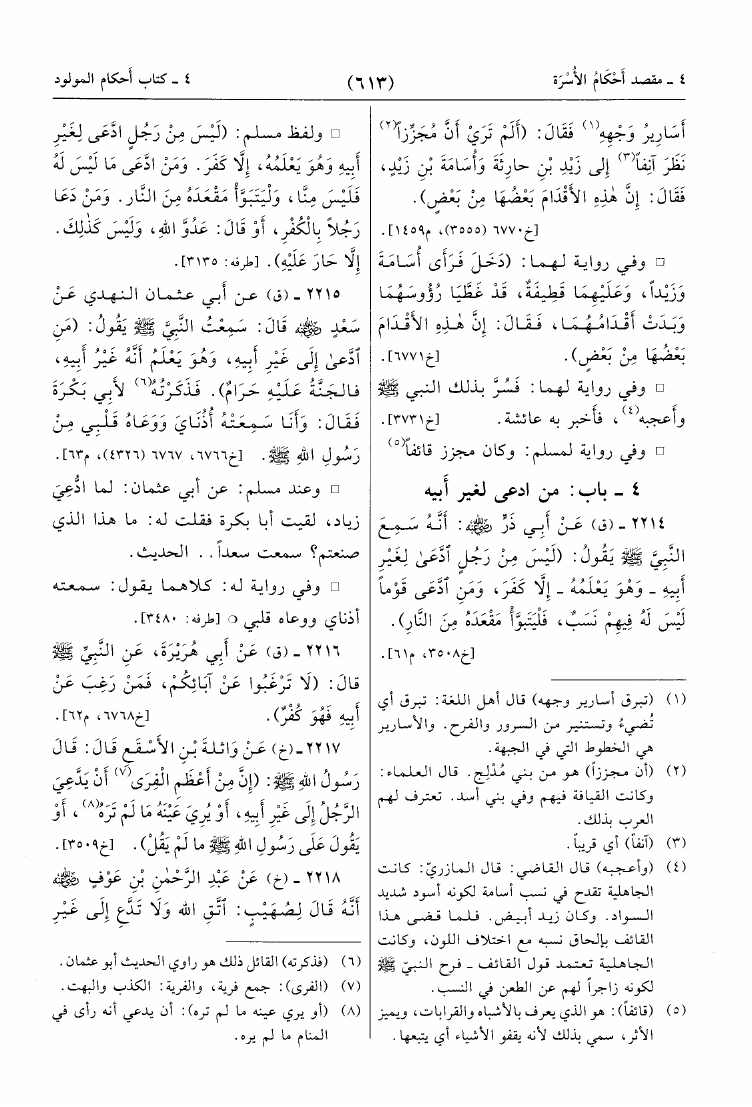 ٤ ـ مقصد أَحْكَامُ الأُسْرَة
(٦١٣)
٤ ـ كتاب أحكام المولود
أَسَارِيرُ وَجْهِهِ(١) فَقَالَ: (أَلَمْ تَرَيْ أَنَّ مُجَزِّزاً(٢)
نَظَرَ آنِفاً(٣) إِلَى زَيْدِ بْنِ حارِثَةَ وَأُسَامَةَ بْنِ زَيْدٍ،
فَقَالَ: إِنَّ هٰذِهِ الأَقْدَامَ بَعْضُهَا مِنْ بَعْضٍ).
[خ٦٧٧٠ (٣٥٥٥)، م١٤٥٩].
□ وفي رواية لهما: (دَخَلَ فَرَأَى أُسَامَةَ
وَزَيْداً، وَعَلَيْهِمَا قَطِيفَةٌ، قَدْ غَطَّيَا رُؤُوسَهُمَا
وَبَدَتْ أَقْدَامُهُمَا، فَقَالَ: إِنَّ هٰذِهِ الأَقْدَامَ
بَعْضُهَا مِنْ بَعْضٍ). [خ٦٧٧١].
□ وفي رواية لهما: فَسُرَّ بذلك النبي ﷺ
وأعجبه(٤)، فأخبر به عائشة. [خ٣٧٣١].
□ وفي رواية لمسلم: وكان مجزز قائفاً(٥)
٤ ـ باب: من ادعى لغير أبيه
٢٢١٤ ـ (ق) عَنْ أَبِي ذَرٍّ رضي الله عنه: أَنَّهُ سَمِعَ
النَّبِيَّ ﷺ يَقُولُ: (لَيْسَ مِنْ رَجُلٍ ادَّعَىٰ لِغَيْرِ
أَبِيهِ ـ وَهُوَ يَعْلَمُهُ ـ إِلَّا كَفَرَ، وَمَنِ ادَّعَى قَوْماً
لَيْسَ لَهُ فِيهِمْ نَسَبٌ، فَلْيَتَبَوَّأْ مَقْعَدَهُ مِنَ النَّارِ).
[خ٣٥٠٨، م٦١].
(١) (تبرق أسارير وجهه) قال أهل اللغة: تبرق أي
تُضيءُ وتستنير من السرور والفرح. والأسارير
هي الخطوط التي في الجبهة.
(٢) (أن مجززاً) هو من بني مُدْلِج. قال العلماء:
وكانت القيافة فيهم وفي بني أسد. تعترف لهم
العرب بذلك.
(٣) (آنفاً) أي قريباً.
(٤) (وأعجبه) قال القاضي: قال المازريّ: كانت
الجاهلية تقدح في نسب أسامة لكونه أسود شديد
السواد. وكان زيد أبيض. فلما قضى هذا
القائف بإلحاق نسبه مع اختلاف اللون، وكانت
الجاهلية تعتمد قول القائف ـ فرح النبيّ ﷺ
لكونه زاجراً لهم عن الطعن في النسب.
(٥) (قائفاً): هو الذي يعرف بالأشباه والقرابات، ويميز
الأثر، سمي بذلك لأنه يقفو الأشياء أي يتبعها.
□ ولفظ مسلم: (لَيْسَ مِنْ رَجُلٍ ادَّعَى لِغَيْرِ
أَبِيهِ وَهُوَ يَعْلَمُهُ، إِلَّا كَفَرَ. وَمَنِ ادَّعَى مَا لَيْسَ لَهُ
فَلَيْسَ مِنَّا، وَلْيَتَبَوَّأْ مَقْعَدَهُ مِنَ النَّار. وَمَنْ دَعَا
رَجُلاً بِالْكُفْرِ، أَوْ قَالَ: عَدُوَّ اللهِ، وَلَيْسَ كَذٰلِكَ.
إِلَّا حَارَ عَلَيْهِ). [طرفه: ٣١٣٥].
٢٢١٥ ـ (ق) عـن أبـي عـثمان النـهدي عَنْ
سَعْدٍ رضي الله عنه قَالَ: سَمِعْتُ النَّبِيَّ ﷺ يَقُولُ: (مَنِ
ادَّعىٰ إِلَى غَيْرِ أَبِيهِ، وَهُوَ يَعْلَمُ أَنَّهُ غَيْرُ أَبِيهِ،
فالجَنَّةُ عَلَيْهِ حَرَامٌ). فَذَكَرْتُهُ(٦) لأَبِي بَكْرَةَ
فَقَالَ: وَأَنَا سَمِعَتْهُ أُذُنَايَ وَوَعَاهُ قَلْبِي مِنْ
رَسُولِ اللهِ ﷺ. [خ٦٧٦٦، ٦٧٦٧ (٤٣٢٦)، م٦٣].
□ وعند مسلم: عن أبي عثمان: لما ادُّعِيَ
زياد، لقيت أبا بكرة فقلت له: ما هذا الذي
صنعتم؟ سمعت سعداً.. الحديث.
□ وفي رواية له: كلاهما يقول: سمعته
أذناي ووعاه قلبي ○ [طرفه: ٣٤٨٠].
٢٢١٦ ـ (ق) عَنْ أَبِي هُرَيْرَةَ، عَنِ النَّبِيِّ ﷺ
قالَ: (لَا تَرْغَبُوا عَنْ آبَائِكُمْ، فَمَنْ رَغِبَ عَنْ
أَبِيهِ فَهُوَ كُفْرٌ). [خ٦٧٦٨، م٦٢].
٢٢١٧ ـ (خ) عَنْ وَاثِلَةَ بْنِ الأَسْقَعِ قَالَ: قَالَ
رَسُولُ اللهِ ﷺ: (إِنَّ مِنْ أَعْظَمِ الْفِرَى(٧) أَنْ يَدَّعِيَ
الرَّجُلُ إِلَى غَيْرِ أَبِيهِ، أَوْ يُرِيَ عَيْنَهُ مَا لَمْ تَرَهُ(٨)، أَوْ
يَقُولَ عَلَى رَسُولِ اللهِ ﷺ ما لَمْ يَقُلْ). [خ٣٥٠٩].
٢٢١٨ ـ (خ) عَنْ عَبْدِ الرَّحْمٰنِ بْنِ عَوْفٍ رضي الله عنه
أَنَّهُ قَالَ لِصُهَيْبٍ: اتَّقِ اللهَ وَلَا تَدَّعِ إِلَى غَيْرِ
(٦) (فذكرته) القائل ذلك هو راوي الحديث أبو عثمان.
(٧) (الفرى): جمع فرية، والفرية: الكذب والبهت.
(٨) (أو يري عينه ما لم تره): أن يدعي أنه رأى في
المنام ما لم يره.